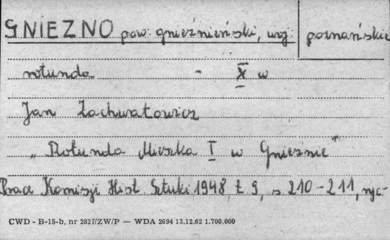 GNIEZNO pow. gnieźnieński, woj. poznańskie
rotunda - X w
Jan Zachwatowicz
„Rotunda Mieszka I w Gnieźnie"
Prace Komisji Hist. Sztuki 1948, t 9, s. 210-211, ryc.
CWD - B-15-b, nr 2827/ZW/P — WDA 2694 13.12.62 1.700.000